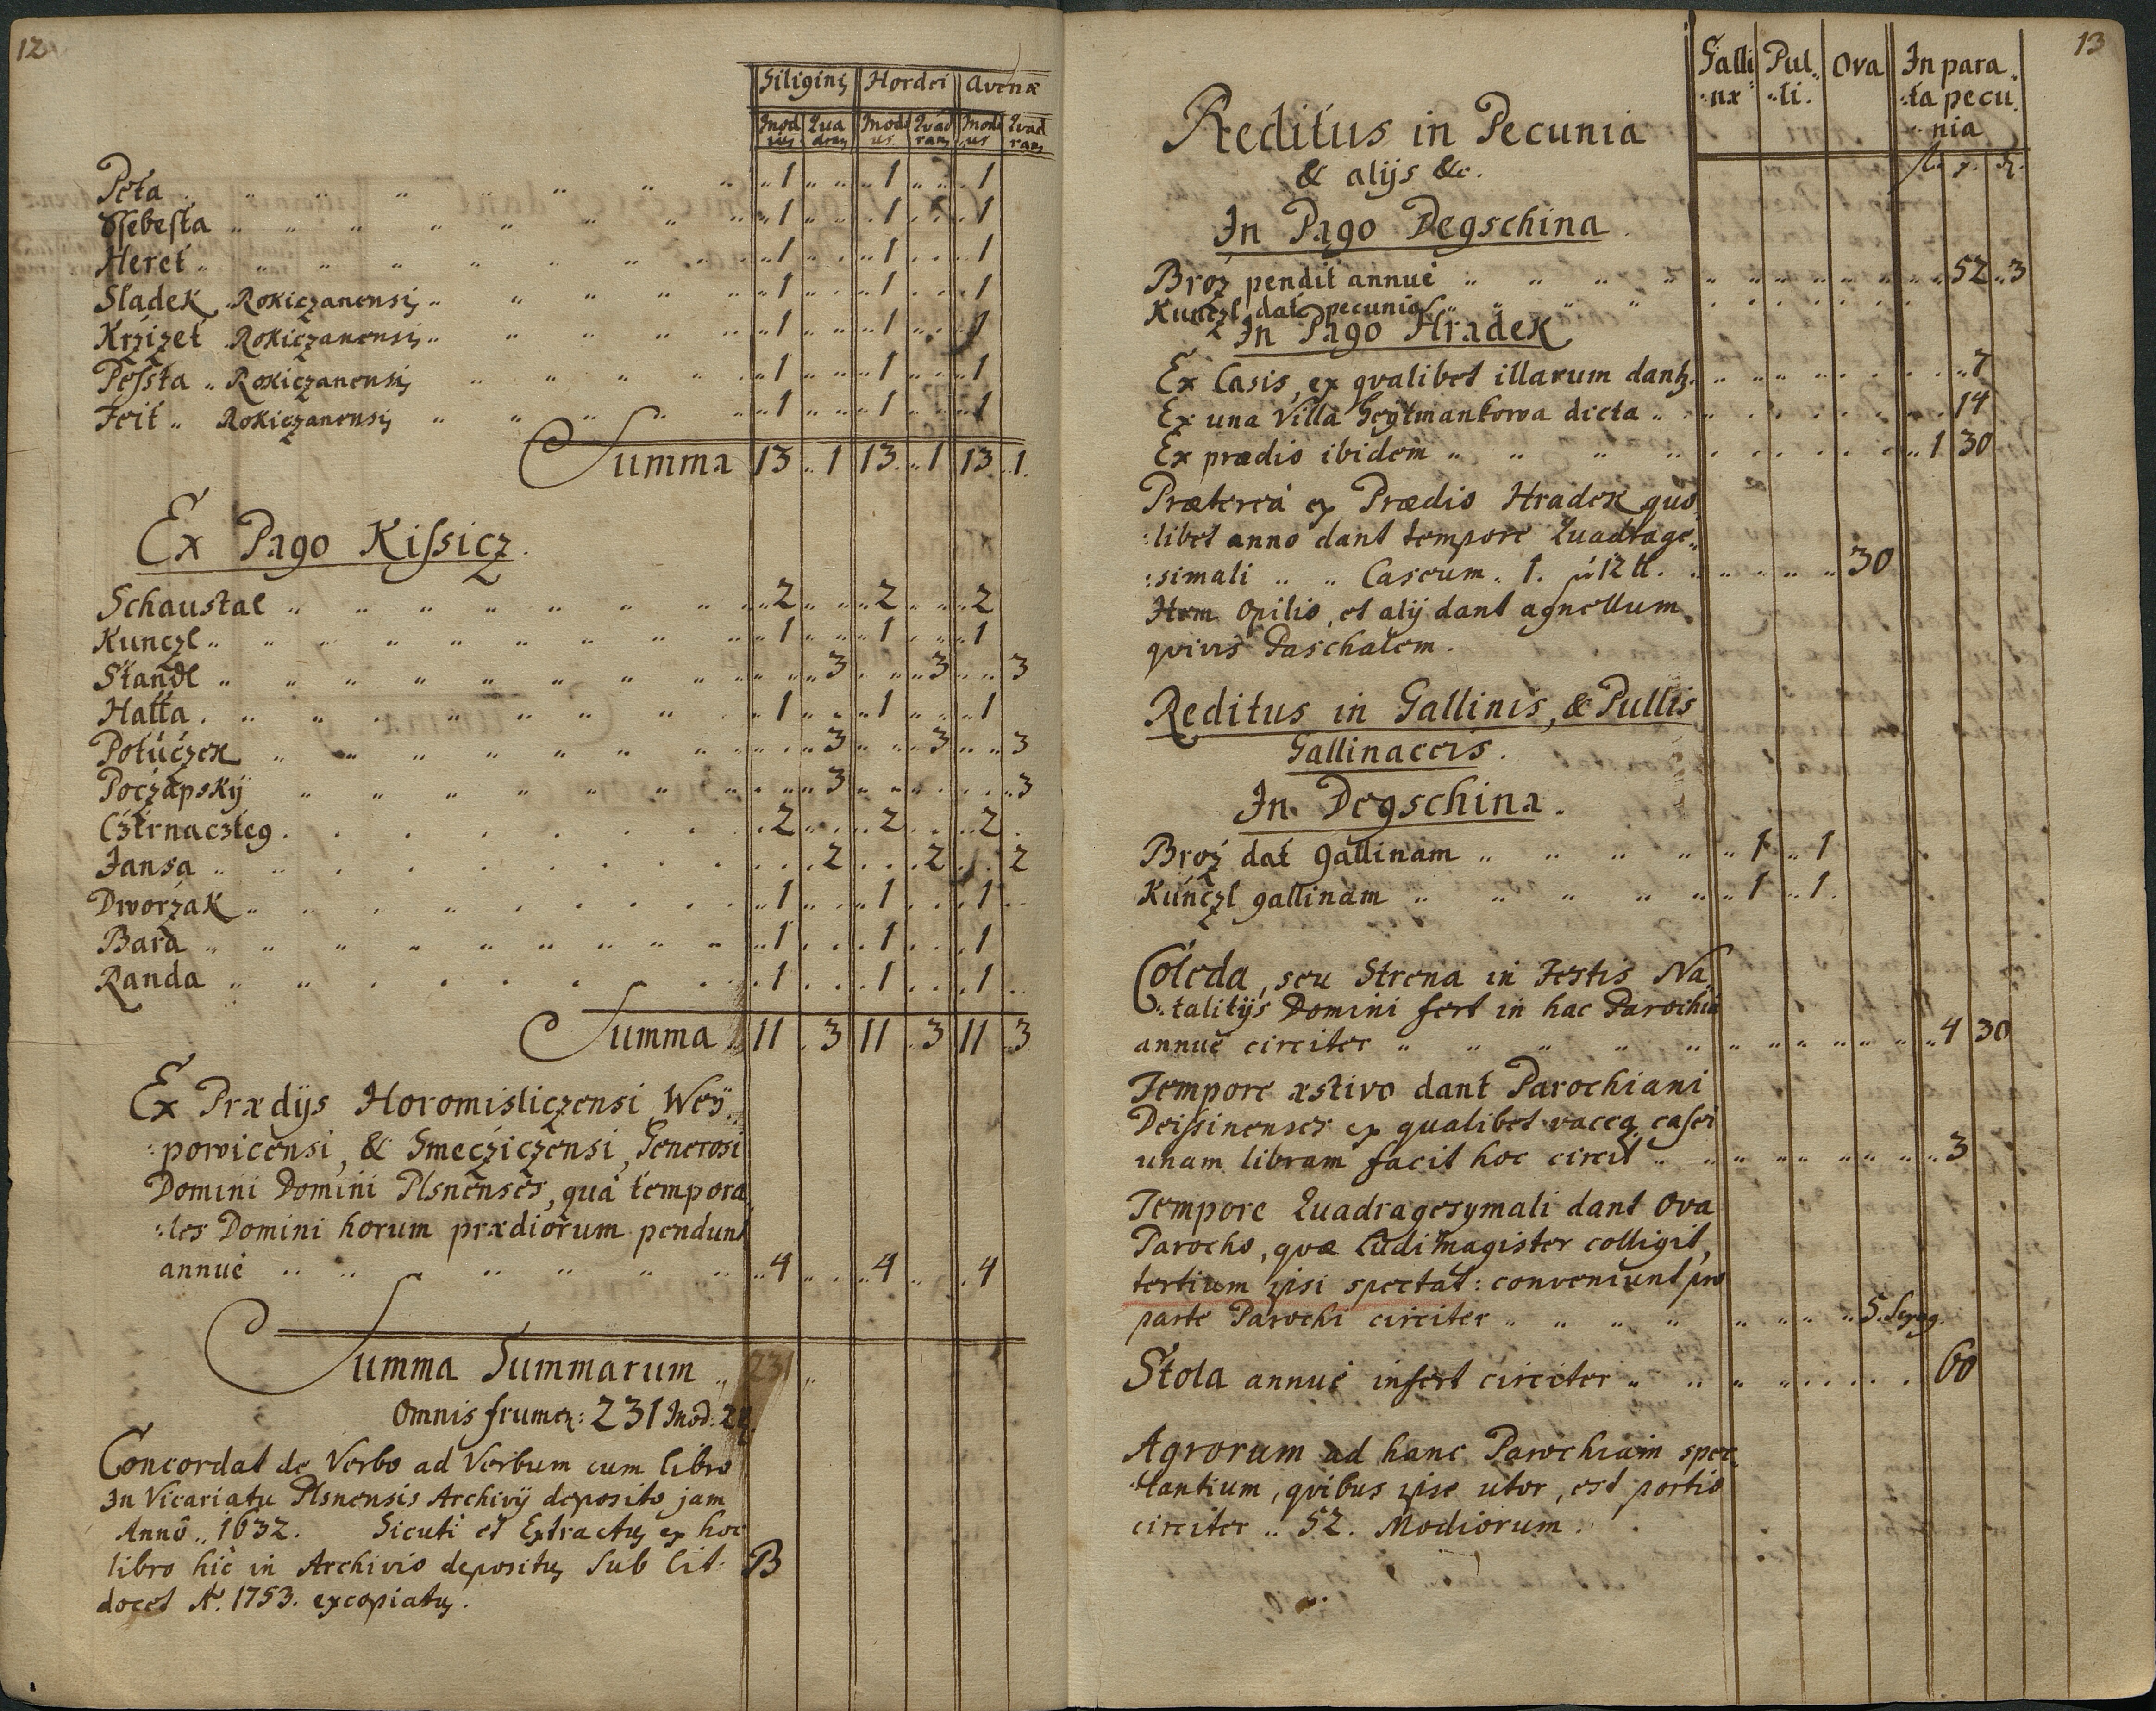 12
Siliginis Hordei Avenæ
Modius Quadrans Modius Quadrans Modius Quadrans
Peta 1 1 1
Ssebesta 1 1 1
Heret 1 1 1
Sladek Rokiczanensis 1 1 1
Krzizet Rokiczanensis 1 1 1
Pessta Rokiczanensis 1 1 1
Feit Rokiczanensis 1 1 1
Summa 13 1 13 1 13 1
Ex Pago Kissicz
Schaustal 2 2 2
Kunczl 1 1 1
Standl 3 3 3
Hatta 1 1 1
Potuczek 3 3 3
Poczapský 3 3
Cztrnaczteg 2 2 2
Jansa 2 2 2
Dworzak 1 1 1
Bara 1 1 1
Randa 1 1 1
Summa 11 3 11 3 11 3
Ex Prædijs Horomisliczensi Wey
powicensi, & Smecziczensi, Generosi
Domini Domini Plsnenses, quà tempora
les Domini horum prædiorum pendunt
annuè 4 4 4
Summa Summarum 231
Omnis frumen: 231 Mod:
Concordat de Verbo ad Verbum cum libro
In Vicariatu Plsnensis Archivij deposito jam
Annô 1632. Sicuti et Extractus ex hoc
libro hic in Archivio depositus sub lit. B
docet Aº. 1753. excopiatus.
13
Gallinæ Pulli. Ova In parata pecunia
Reditus in Pecunia
& alijs &c.
In Pago Degschina
Broz pendit annuè 52 3
Kunczl dat pecunias
In Pago Hradek
Ex Casis, ex qvalibet illarum 7
Ex una Villa Geytmankowa dicta 14
Ex prædio ibidem 1 30
Prætereà ex Prædio Hradek quo
libet anno dant tempore Quadrage
simali Caseum 1. 12 tt. 30
Item Opilio, et alij dant agnellum
qvivis Paschalem.
Reditus in Gallinis, & Pullis
Gallinaceis.
In Degschina.
Broz dat gallinam 1 1
Kunczl gallinam 1 1
Coleda, seu Strena in Festis Na
talitijs Domini fert in hac Parochia
annuè circiter 4 30
Tempore æstivo dant Parochiani
Deissinenses ex qualibet vacca casei
unam libram facit hoc circit 3
Tempore Quadragesymali dant Ova
Parocho, qvæ Ludi Magister colligit,
tertium ipsi spectat: conveniunt pro
parte Parochi circiter 5. Sexag.
Stola annuè infert circiter 60
Agrorum ad hanc Parochiam spec
tantium, qvibus ipse utor, est portio
circiter 52. Modiorum.